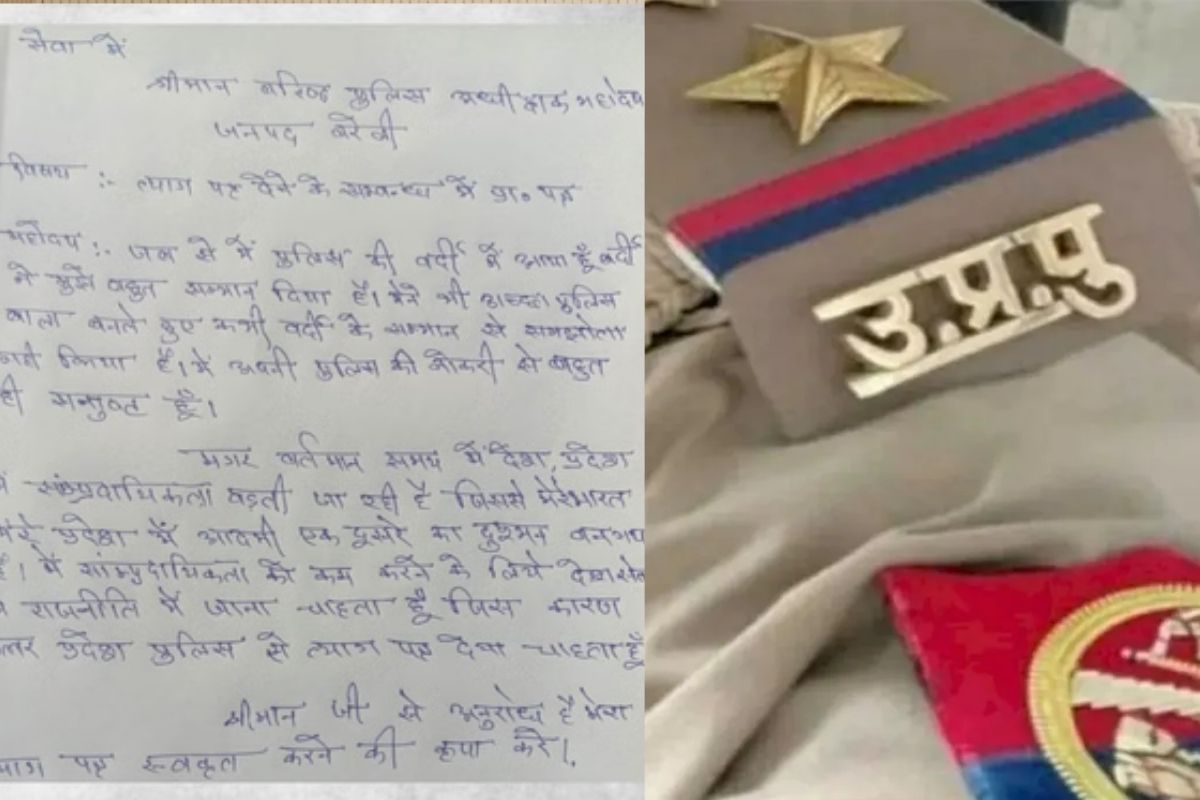 सेवा में
श्रीमान वरिष्ठ पुलिस अधीक्षक महोदय
जनपद बरेली
विषय :- त्याग पत्र देने के सम्बन्ध में प्रा० पत्र
महोदय :- जब से मैं पुलिस की वर्दी में आया हूँ वर्दी
ने मुझे बहुत सम्मान दिया है। मैंने भी अच्छा पुलिस
वाला बनते हुए कभी वर्दी के सम्मान से समझौता
नहीं किया है। मैं अपनी पुलिस की नौकरी से बहुत
ही सन्तुष्ट हूँ।
मगर वर्तमान समय में देश, प्रदेश
में साम्प्रदायिकता बढ़ती जा रही है जिससे मेरे भारत
मेरे प्रदेश में आदमी एक दूसरे का दुश्मन बन गया
है। मैं साम्प्रदायिकता को कम करने के लिये देश सेवा
राजनीति में जाना चाहता हूँ जिस कारण
उत्तर प्रदेश पुलिस से त्याग पत्र देना चाहता हूँ
श्रीमान जी से अनुरोध है मेरा
त्याग पत्र स्वकृत करने की कृपा करें।
उ.प्र.पु